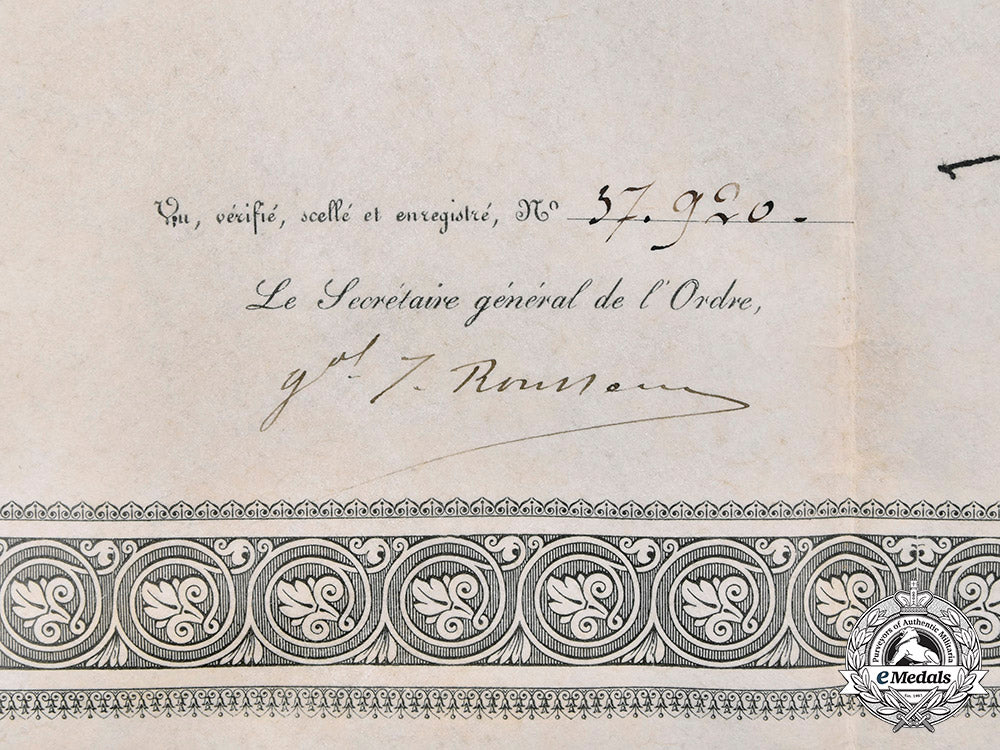 Vu, vérifié, scellé et enregistré, Nº 37.920.
Le Secrétaire général de l'Ordre,
gal. J. Rousseau
Purveyors of Authentic Militaria
eMedals